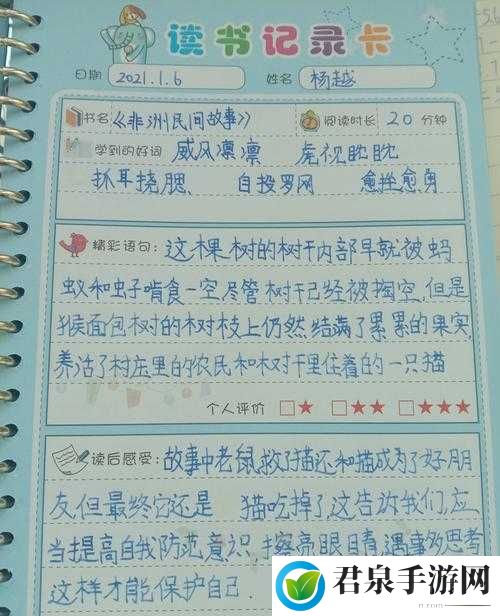 读书记录卡
日期 2021.1.6 姓名 杨越
书名 《非洲民间故事》 阅读时长 20 分钟
学到的好词 威风凛凛 虎视眈眈
抓耳挠腮、 自投罗网 愈挫愈勇
精彩语句: 这棵树的树干内部早就被蚂
蚁和虫子啃食一空,尽管树干已经被掏空,但是
猴面包树的树枝上仍然结满了累累的果实,
养活了村庄里的农民和树干里住着的一只猫
个人评价 □★ □★★ □★★★
读后感受: 故事中老鼠救了猫还和猫成为了好朋
友,但最终它还是 猫吃掉了,这告诉我们,应
当提高自我防范意识,擦亮眼睛,遇事多思考
这样才能保护自己.
君泉手游网